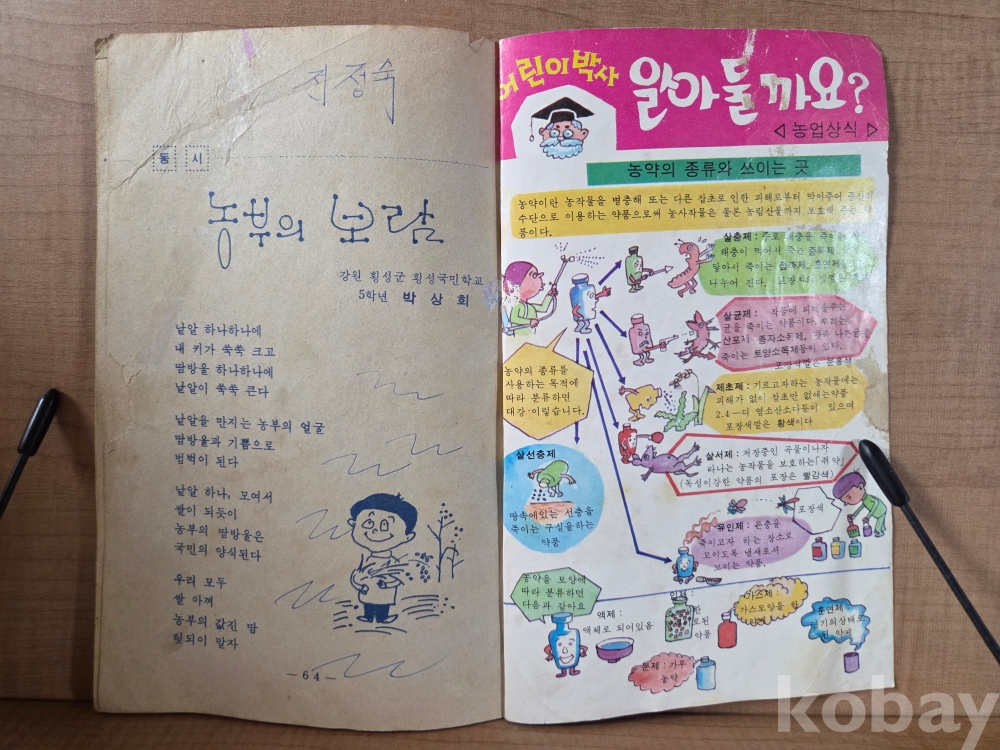 전정숙
동시
농부의 보람
강원 횡성군 횡성국민학교
5학년 박상희
낱알 하나하나에
내 키가 쑥쑥 크고
땀방울 하나하나에
낱알이 쑥쑥 큰다
낱알을 만지는 농부의 얼굴
땀방울과 기쁨으로
범벅이 된다
낱알 하나, 모여서
쌀이 되듯이
농부의 땀방울은
국민의 양식된다
우리 모두
쌀 아껴
농부의 값진 땀
헛되이 말자
—64—
어린이박사
알아둘까요?
◁ 농업상식 ▷
농약의 종류와 쓰이는 곳
농약이란 농작물을 병충해 또는 다른 잡초로 인한 피해로부터 막아주어
수단으로 이용하는 약품으로써 농사작물은 물론 농림산물까지 보호해 주는
품이다.
살충제: 주로 해충을 죽이는
해충이 먹어서 죽는
닿아서 죽는
나누어 진다. 포장지의
살균제: 작물에 피해를주는
균을 죽이는 약품이다.
산포제 종자소독제, 땅속
죽이는 토양소독제등이 있다.
포장색깔은 분홍색
농약의 종류를
사용하는 목적에
따라 분류하면
대강 이렇습니다.
제초제: 기르고자하는 농작물에는
피해가 없이 잡초만 없애는약품
2.4—디 염소산소다등이 있으며
포장색깔은 황색이다
살서제: 저장중인 곡물이나자
라나는 농작물을 보호하는「쥐약」
(독성이강한 약품의 포장은 빨강색)
살선충제
땅속에있는 선충을
죽이는 구실을하는
약품
포장색
유인제: 곤충을
죽이고자 하는 장소로
모이도록 냄새로서
꼬이는 약품.
농약을 모양에
따라 분류하면
다음과 같아요
액제:
액체로 되어있음
약품
분제: 가루
농약
가스제:
가스모양을 한
훈연제
연기의상태로
된 약제
kobay